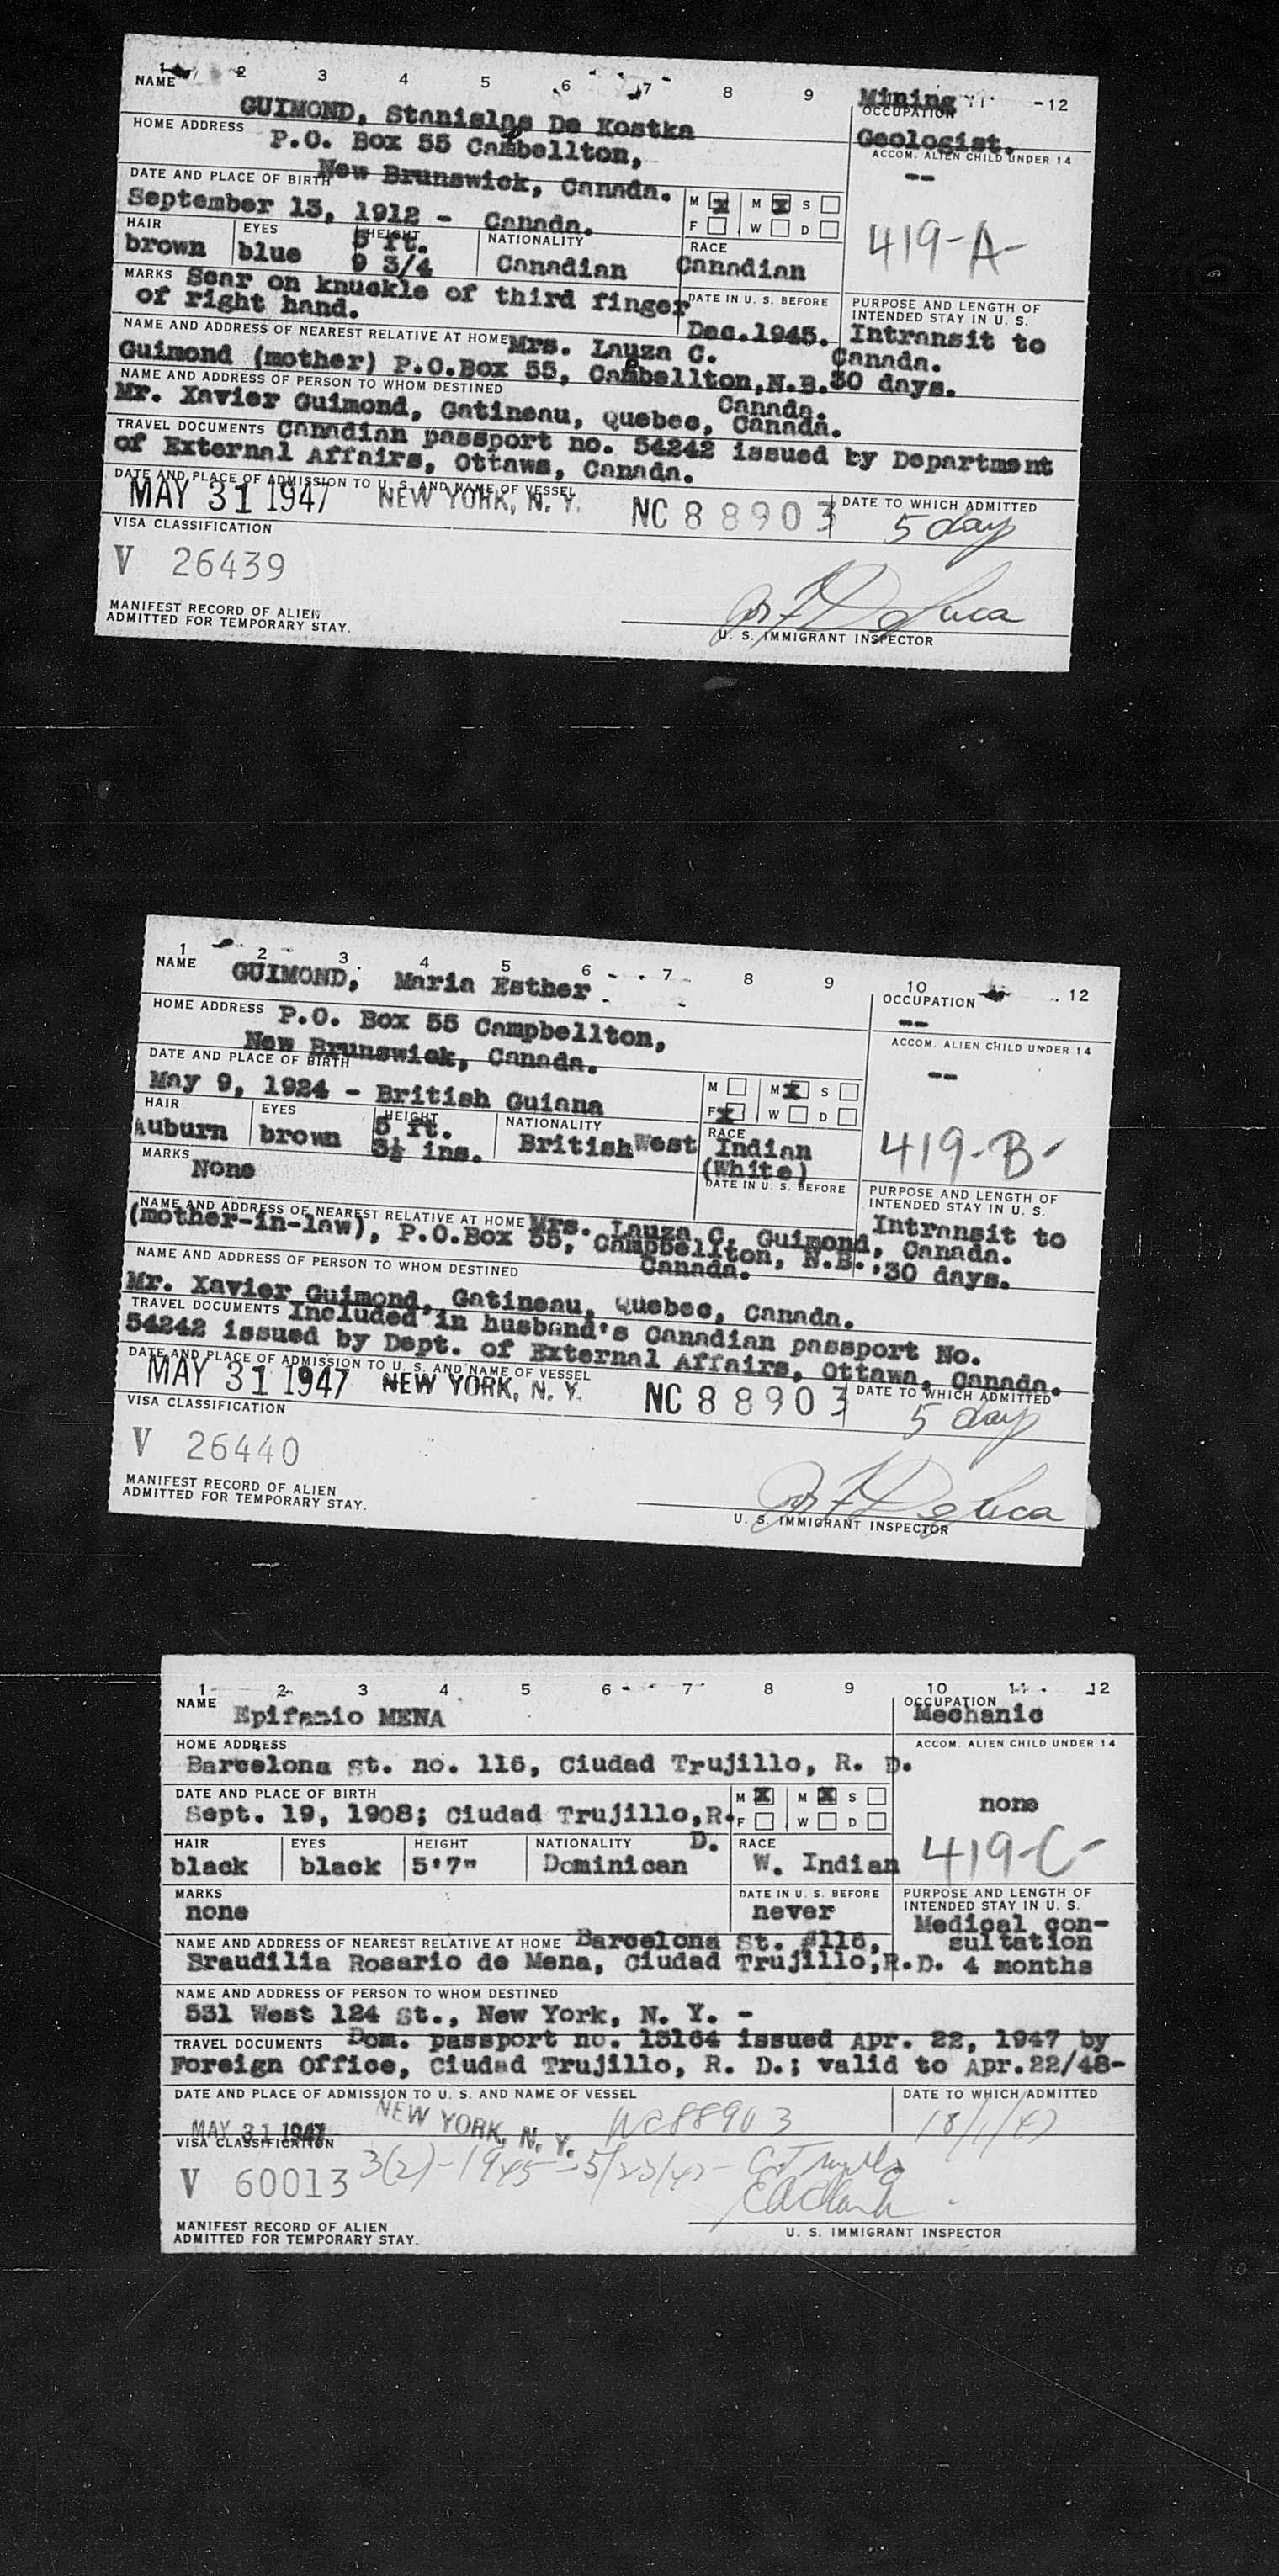 1 2 3 4 5 6 7 8 9 11 12
NAME GUIMOND, Stanislas De Kostka
Mining
OCCUPATION
Geologist.
HOME ADDRESS P.O. Box 55 Cambellton,
New Brunswick, Canada.
ACCOM. ALIEN CHILD UNDER 14
--
DATE AND PLACE OF BIRTH
September 13, 1912 - Canada.
M x M x S
F W D
419-A-
HAIR EYES HEIGHT NATIONALITY RACE
brown blue 5 ft. 9 3/4 Canadian Canadian
MARKS Scar on knuckle of third finger
of right hand.
DATE IN U. S. BEFORE
Dec.1945.
PURPOSE AND LENGTH OF
INTENDED STAY IN U. S.
Intransit to
Canada.
30 days.
NAME AND ADDRESS OF NEAREST RELATIVE AT HOME Mrs. Lauza C.
Guimond (mother) P.O.Box 55, Cambellton,N.B.
Canada.
NAME AND ADDRESS OF PERSON TO WHOM DESTINED
Mr. Xavier Guimond, Gatineau, Quebec, Canada.
TRAVEL DOCUMENTS Canadian passport no. 54242 issued by Department
of External Affairs, Ottawa, Canada.
DATE AND PLACE OF ADMISSION TO U. S. AND NAME OF VESSEL
MAY 31 1947 NEW YORK, N. Y. NC 88903
DATE TO WHICH ADMITTED
5 day
VISA CLASSIFICATION
V 26439
MANIFEST RECORD OF ALIEN
ADMITTED FOR TEMPORARY STAY.
U. S. IMMIGRANT INSPECTOR
1 2 3 4 5 6 7 8 9 10 12
NAME GUIMOND, Maria Esther
OCCUPATION
--
HOME ADDRESS P.O. Box 55 Campbellton,
New Brunswick, Canada.
ACCOM. ALIEN CHILD UNDER 14
--
DATE AND PLACE OF BIRTH
May 9, 1924 - British Guiana
M M x S
F x W D
419-B-
HAIR EYES HEIGHT NATIONALITY RACE
Auburn brown 5 ft. 3½ ins. British West Indian
(White)
MARKS
None
DATE IN U. S. BEFORE
PURPOSE AND LENGTH OF
INTENDED STAY IN U. S.
Intransit to
Canada.
30 days.
NAME AND ADDRESS OF NEAREST RELATIVE AT HOME Mrs. Lauza C. Guimond,
(mother-in-law), P.O.Box 55, Campbellton, N.B.,
Canada.
NAME AND ADDRESS OF PERSON TO WHOM DESTINED
Mr. Xavier Guimond, Gatineau, Quebec, Canada.
TRAVEL DOCUMENTS Included in husband's Canadian passport No.
54242 issued by Dept. of External Affairs, Ottawa, Canada.
DATE AND PLACE OF ADMISSION TO U. S. AND NAME OF VESSEL
MAY 31 1947 NEW YORK, N. Y. NC 88903
DATE TO WHICH ADMITTED
5 day
VISA CLASSIFICATION
V 26440
MANIFEST RECORD OF ALIEN
ADMITTED FOR TEMPORARY STAY.
U. S. IMMIGRANT INSPECTOR
1 2 3 4 5 6 7 8 9 10 11 12
NAME Epifanio MENA
OCCUPATION
Mechanic
HOME ADDRESS
Barcelona st. no. 116, Ciudad Trujillo, R. D.
ACCOM. ALIEN CHILD UNDER 14
none
DATE AND PLACE OF BIRTH
Sept. 19, 1908; Ciudad Trujillo,R.
D.
M x M x S
F W D
419-C-
HAIR EYES HEIGHT NATIONALITY RACE
black black 5'7" Dominican W. Indian
MARKS
none
DATE IN U. S. BEFORE
never
PURPOSE AND LENGTH OF
INTENDED STAY IN U. S.
Medical con-
sultation
4 months
NAME AND ADDRESS OF NEAREST RELATIVE AT HOME Barcelona St. #116,
Braudilia Rosario de Mena, Ciudad Trujillo,R.D.
NAME AND ADDRESS OF PERSON TO WHOM DESTINED
531 West 124 St., New York, N. Y. -
TRAVEL DOCUMENTS Dom. passport no. 13164 issued Apr. 22, 1947 by
Foreign Office, Ciudad Trujillo, R. D.; valid to Apr.22/48-
DATE AND PLACE OF ADMISSION TO U. S. AND NAME OF VESSEL
MAY 31 1947 NEW YORK, N. Y. NC88903
DATE TO WHICH ADMITTED
10/1/47
VISA CLASSIFICATION
3(2)-1945-5/23/47-
V 60013
MANIFEST RECORD OF ALIEN
ADMITTED FOR TEMPORARY STAY.
U. S. IMMIGRANT INSPECTOR